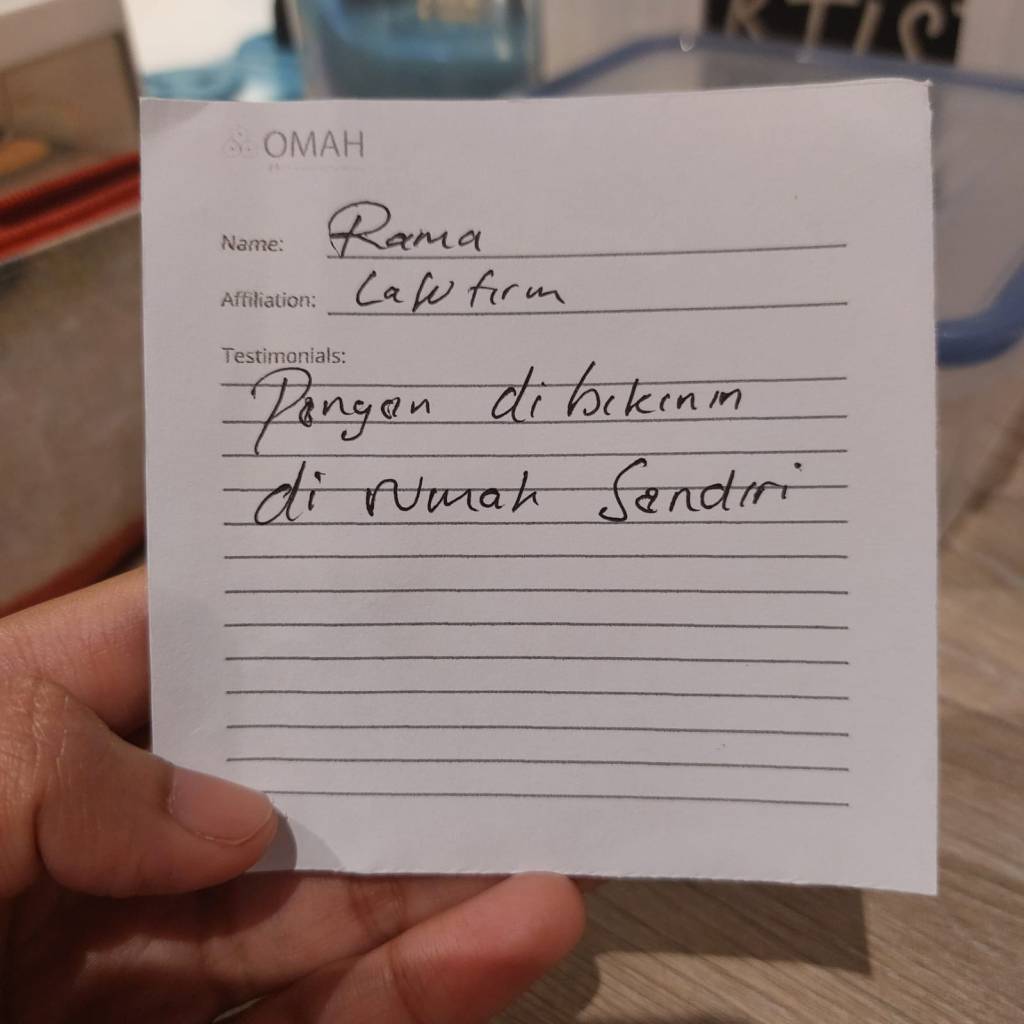 RTIS
OMAH
Name: Rama
Affiliation: Law firm
Testimonials:
Pengen dibikinin
di rumah Sendiri